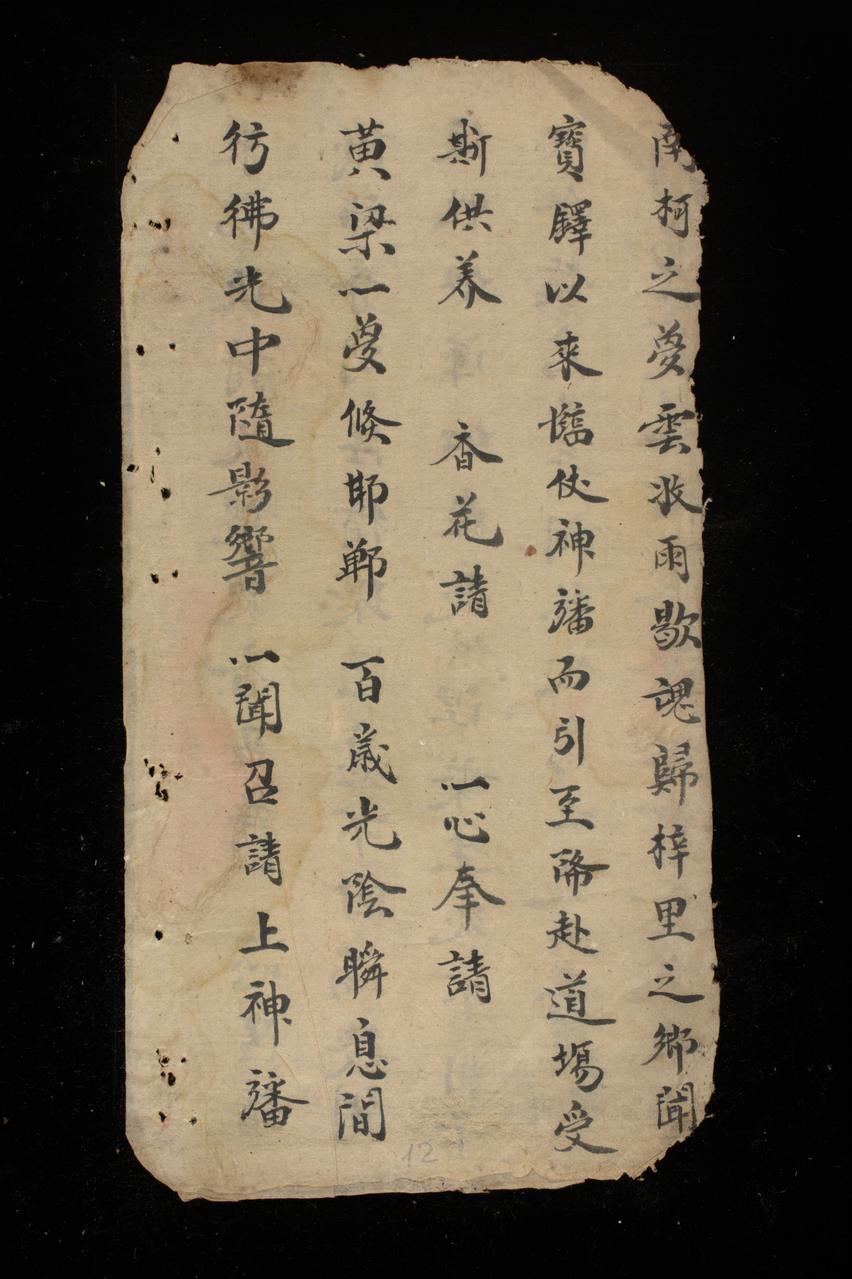 南柯之夢雲收雨歇魂歸梓里之鄉聞
寶鐸以來臨仗神旛而引至降赴道場受
斯供养 香花請 一心奉請
黄梁一夢倐邯鄲 百歲光陰瞬息間
彷彿光中隨影響 一聞召請上神旛
12